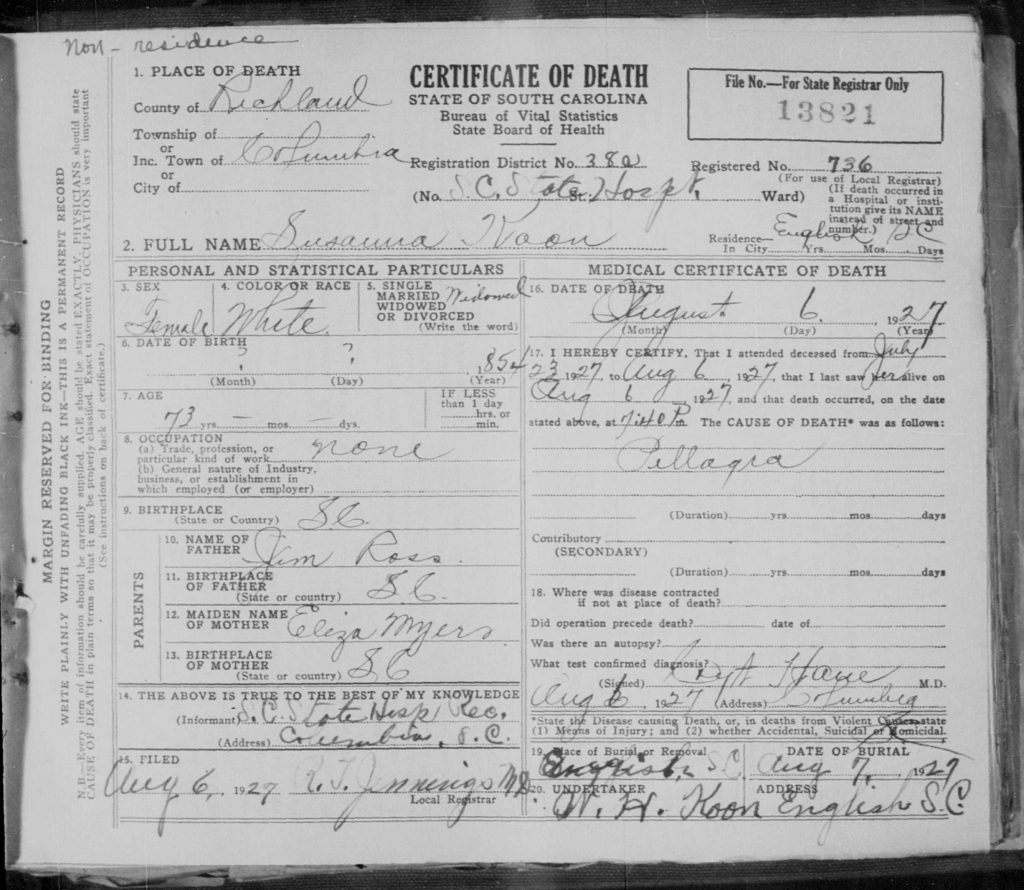 Non-residence
1. PLACE OF DEATH
County of Richland
Township of
or
Inc. Town of Columbia
or
City of
CERTIFICATE OF DEATH
STATE OF SOUTH CAROLINA
Bureau of Vital Statistics
State Board of Health
File No.—For State Registrar Only
13821
Registration District No. 38a
Registered No. 736
(For use of Local Registrar)
(No. S.C. State Hospt. St. Ward)
(If death occurred in
a Hospital or insti-
tution give its NAME
instead of street and
number.)
2. FULL NAME Susanna Koon
Residence— English SC
In City Yrs. Mos. Days
MARGIN RESERVED FOR BINDING
WRITE PLAINLY WITH UNFADING BLACK INK—THIS IS A PERMANENT RECORD
N.B.—Every item of information should be carefully supplied. AGE should be stated EXACTLY. PHYSICIANS should state
CAUSE OF DEATH in plain terms so that it may be properly classified. Exact statement of OCCUPATION is very important
(See instructions on back of certificate.)
PERSONAL AND STATISTICAL PARTICULARS
3. SEX
Female
4. COLOR OR RACE
White
5. SINGLE
MARRIED
WIDOWED
OR DIVORCED
(Write the word)
Widowed
6. DATE OF BIRTH
? ? 1854
(Month) (Day) (Year)
7. AGE
73 yrs. — mos. — dys.
IF LESS
than 1 day
hrs. or
min.
8. OCCUPATION
(a) Trade, profession, or
particular kind of work none
(b) General nature of Industry,
business, or establishment in
which employed (or employer)
9. BIRTHPLACE
(State or Country) SC.
PARENTS
10. NAME OF
FATHER Jim Ross
11. BIRTHPLACE
OF FATHER
(State or country) SC.
12. MAIDEN NAME
OF MOTHER Eliza Myers
13. BIRTHPLACE
OF MOTHER
(State or country) SC
14. THE ABOVE IS TRUE TO THE BEST OF MY KNOWLEDGE
(Informant) S.C. State Hosp Rec.
(Address) Columbia, S.C.
15. FILED
Aug 6, 1927 R. T. Jennings MD
Local Registrar
MEDICAL CERTIFICATE OF DEATH
16. DATE OF DEATH
August 6. 1927
(Month) (Day) (Year)
17. I HEREBY CERTIFY, That I attended deceased from July
23 1927 to Aug 6, 1927, that I last saw her alive on
Aug 6, 1927, and that death occurred, on the date
stated above, at 7:40 P.m. The CAUSE OF DEATH* was as follows:
Pellagra
(Duration) yrs. mos. days
Contributory
(SECONDARY)
(Duration) yrs. mos. days
18. Where was disease contracted
if not at place of death?
Did operation precede death? date of
Was there an autopsy?
What test confirmed diagnosis?
(Signed) Hane M.D.
Aug 6, 1927 (Address) Columbia
*State the Disease causing Death, or, in deaths from Violent Causes state
(1) Means of Injury; and (2) whether Accidental, Suicidal or Homicidal.
19. Place of Burial or Removal
English, S.C.
DATE OF BURIAL
Aug 7, 1927
20. UNDERTAKER
W. H. Koon
ADDRESS
English S.C.